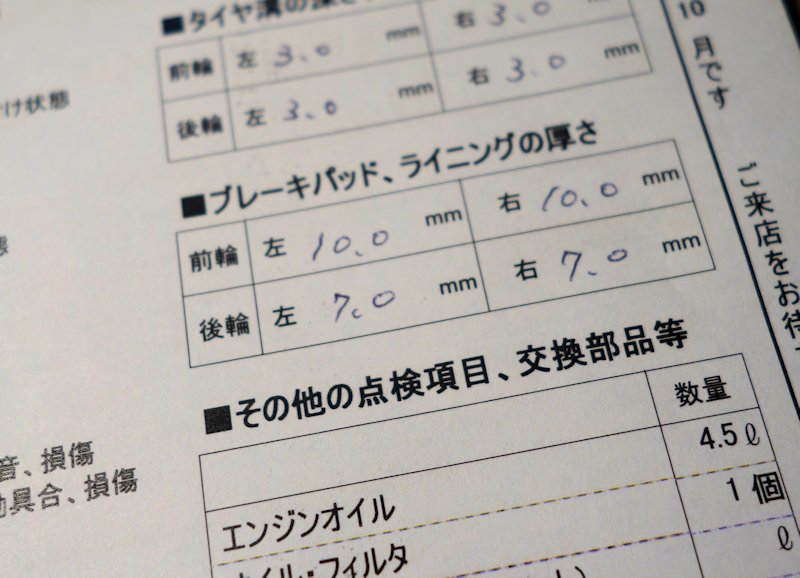 ■タイヤ溝の深さ
前輪 左 3.0 mm 右 3.0 mm
後輪 左 3.0 mm 右 3.0 mm
■ブレーキパッド、ライニングの厚さ
前輪 左 10.0 mm 右 10.0 mm
後輪 左 7.0 mm 右 7.0 mm
■その他の点検項目、交換部品等
数量
4.5ℓ
エンジンオイル 1個
オイル・フィルタ ℓ
け状態
態
音、損傷
具合、損傷
10月です
ご来店をお待